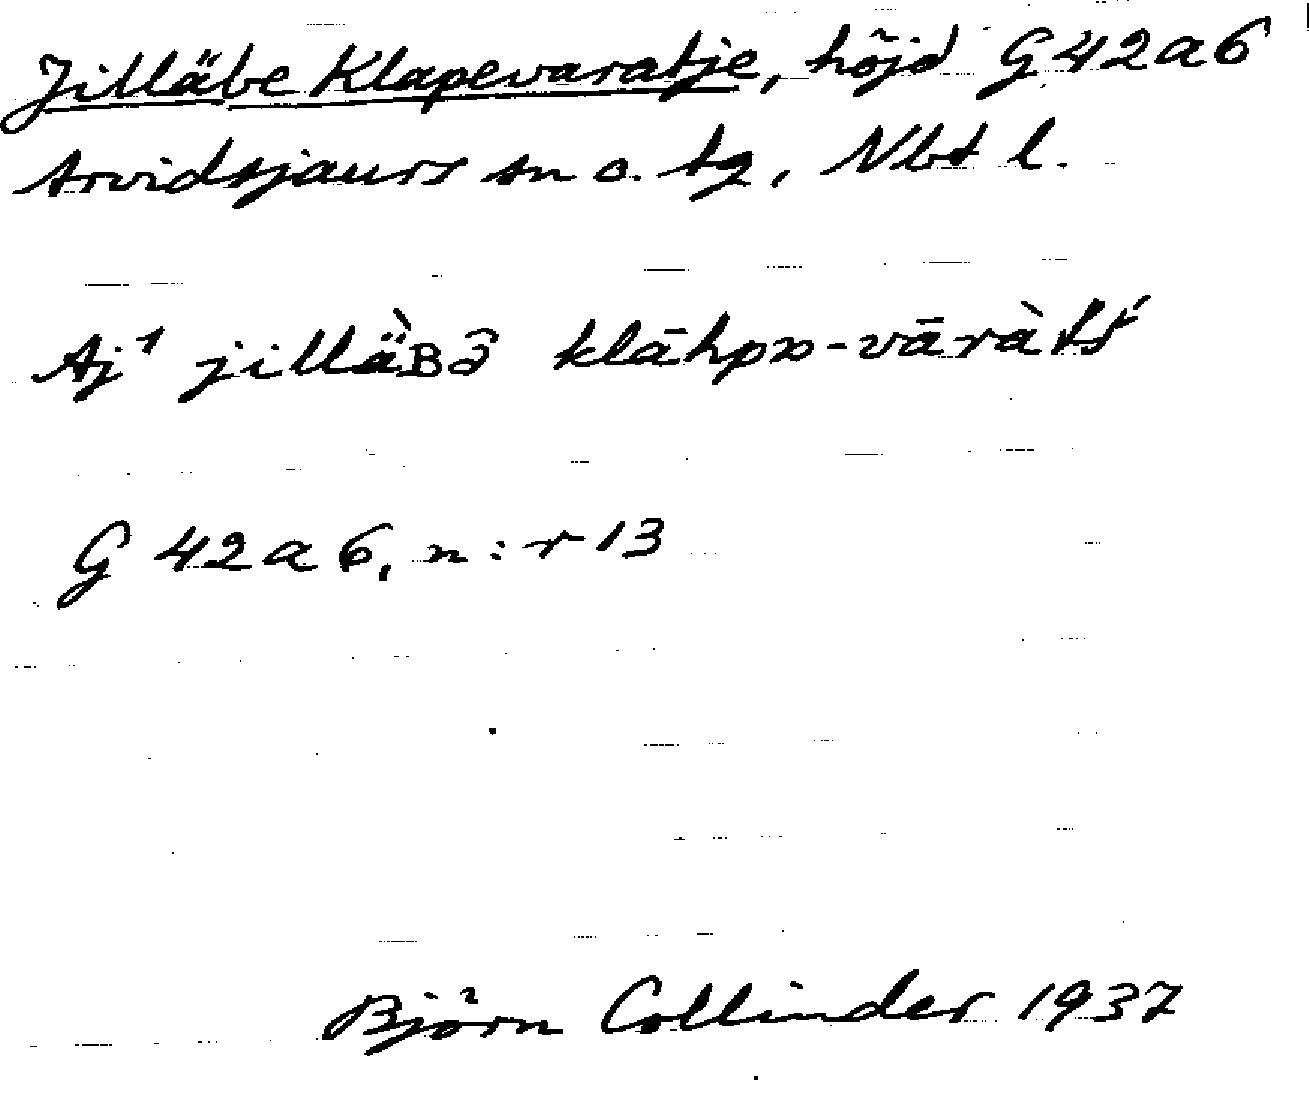 Jilläbe Klapevaratje, höjd G42a6
Arvidsjaurs sn o. tg, Nbt l.
Aj¹ jillä̀ʙə̑ klāhpɷ-vāràtś
G 42a6, n:r 13
Björn Collinder 1937